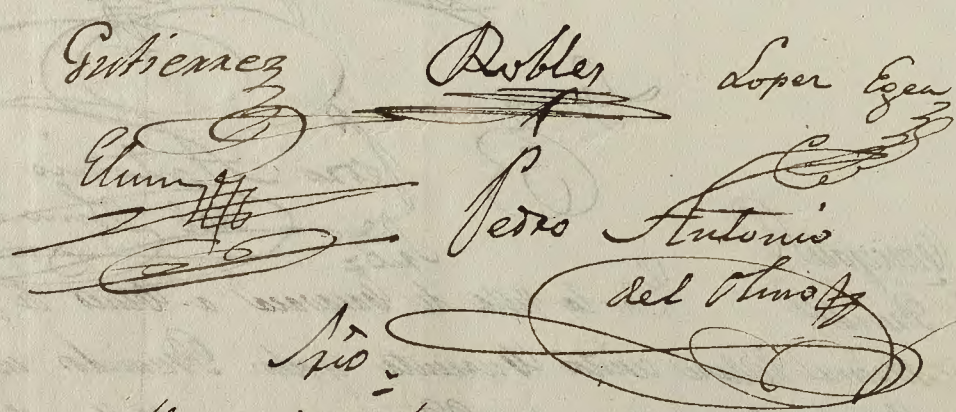 Gutierrez Robles Lopez Egea
Pedro Antonio
del Olmo
Srio.